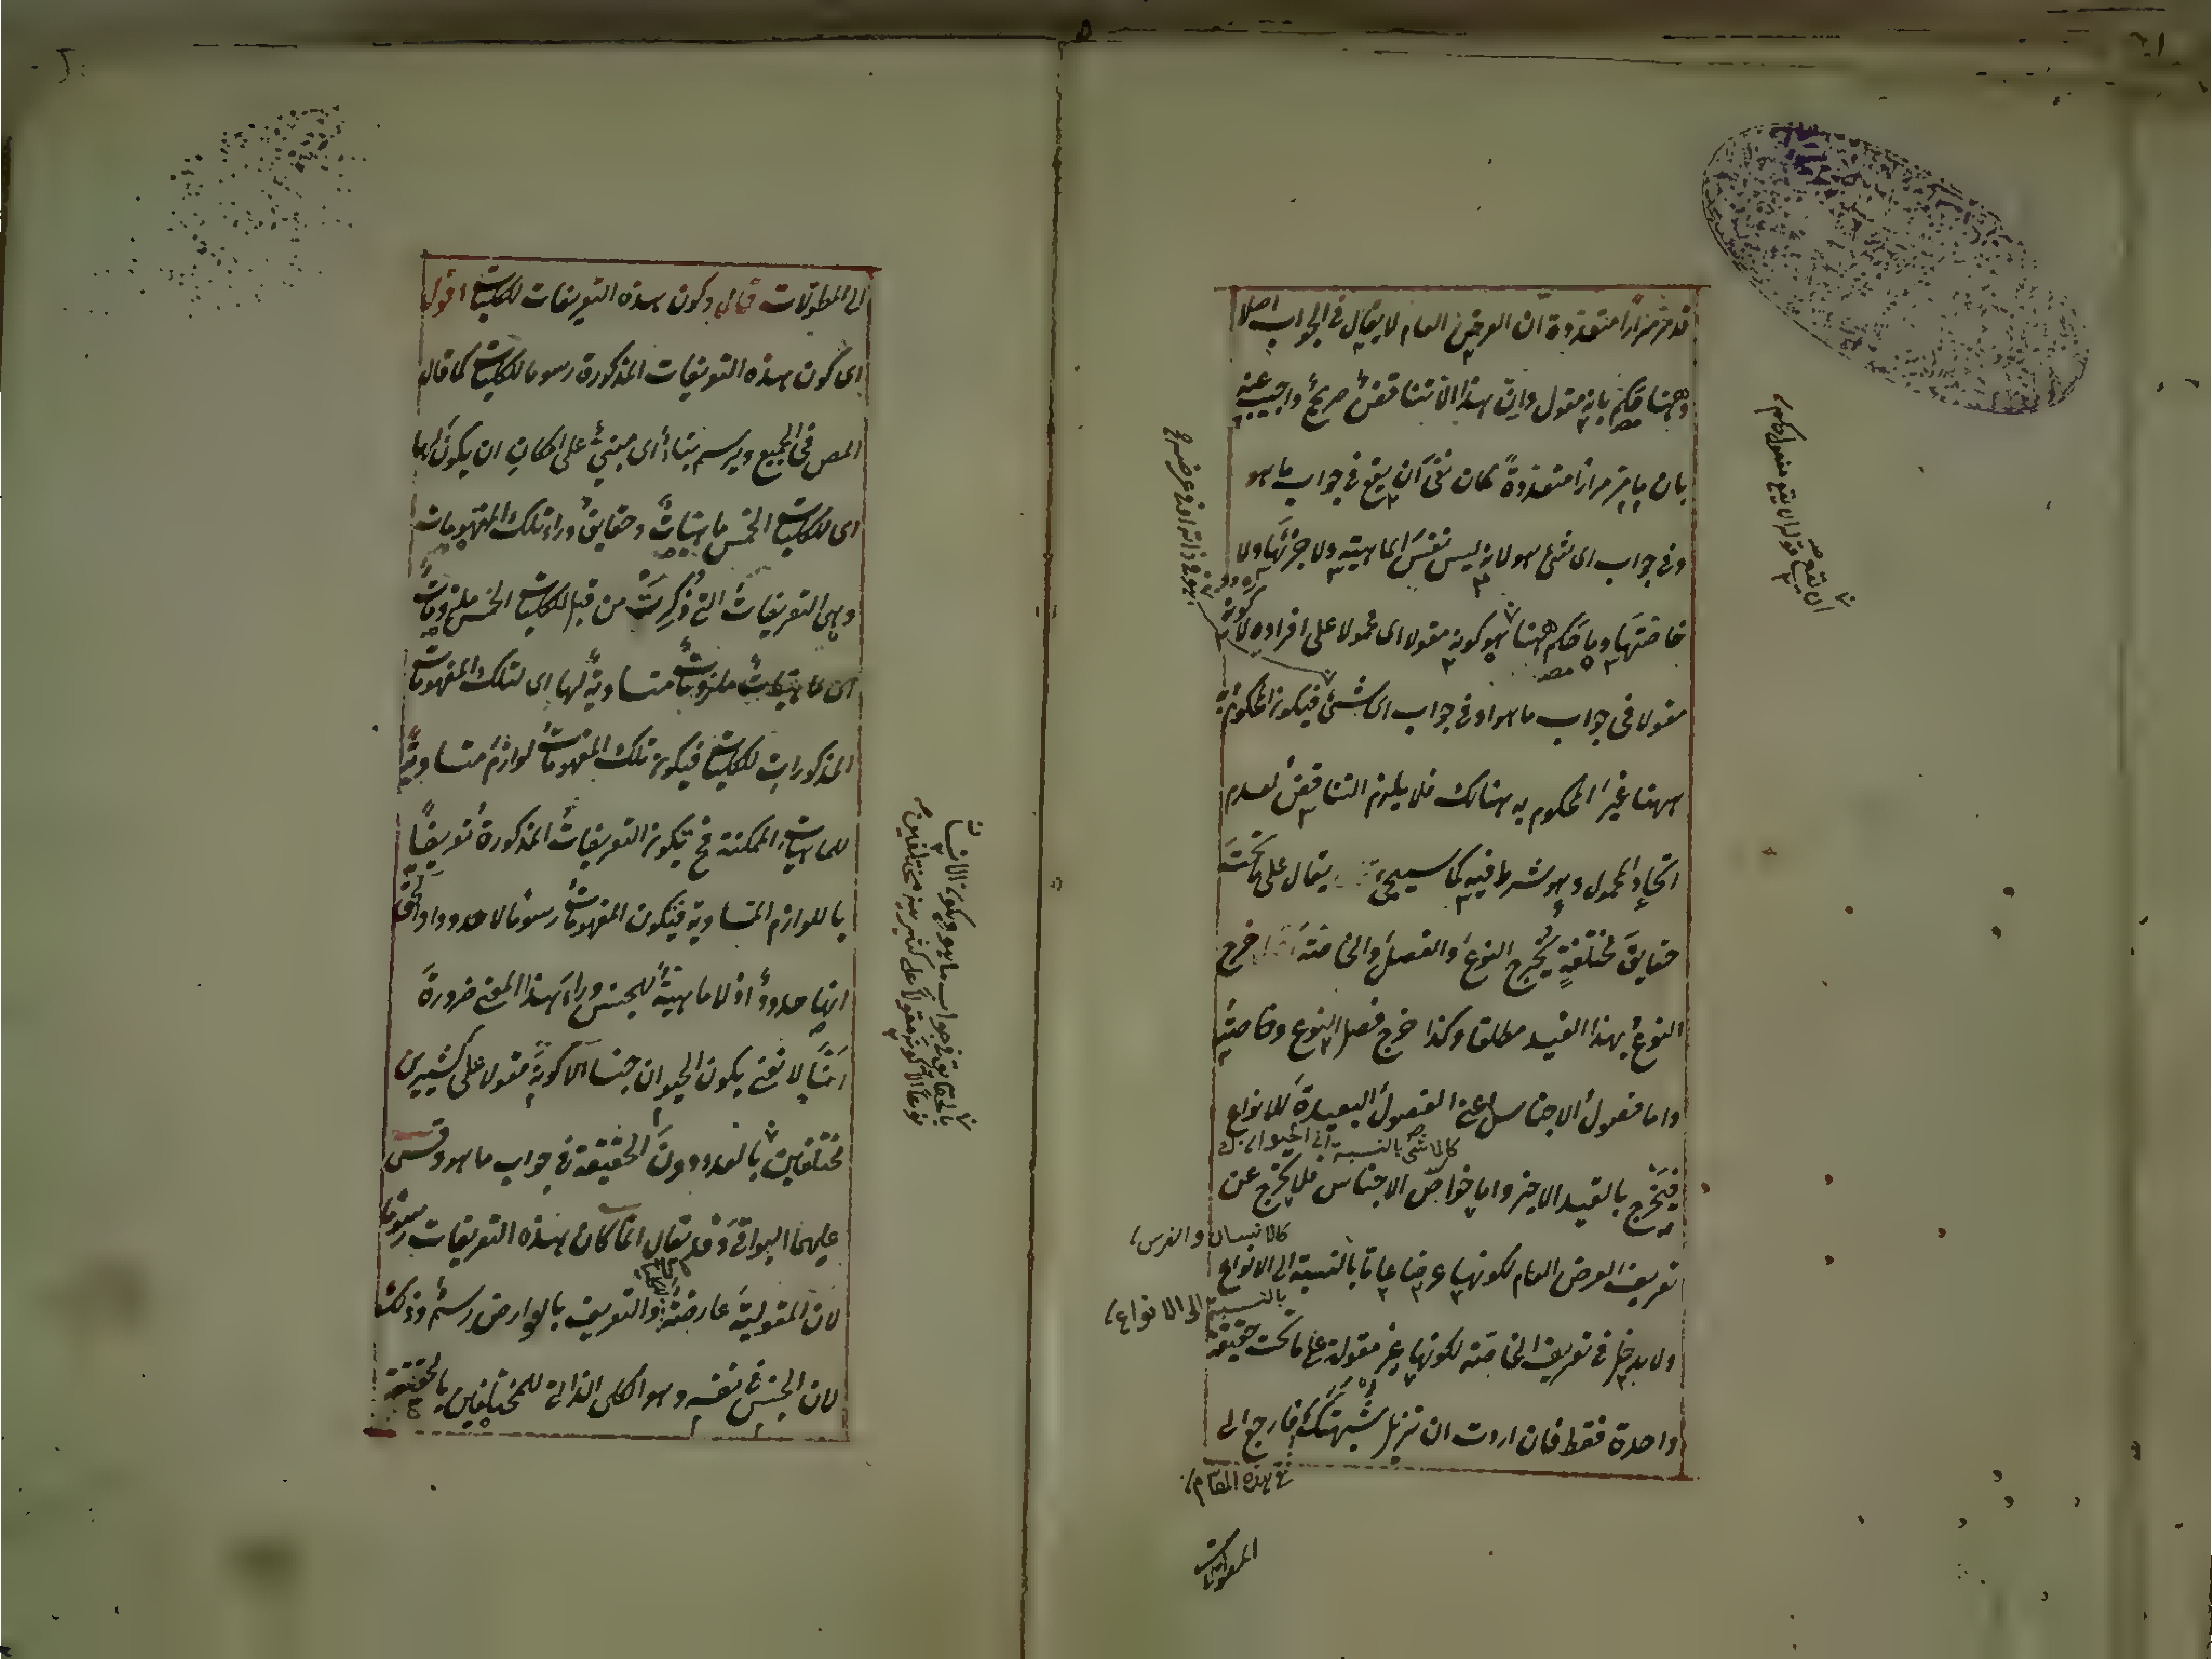 قد مر مرارا متعددة ان العرض العام لا يقال فى الجواب اصلا
وههنا حكم بانه مقول وان هذا الا تناقض صريح واجيب عنه
بان ما مر مرارا متعددة كان نفى ان يقع فى جواب ما هو
وفى جواب اى شئ هو لانه ليس نفس الماهية ولا جزئها ولا
خاصتها وما حكم ههنا هو كونه مقولا اى محمولا على افراده لا كونه
مقولا فى جواب ما هو او فى جواب اى شئ فيكون المحكوم به
ههنا غير المحكوم به هنالك فلا يلزم التناقض لعدم
اتحاد المحمول وهو شرط فيه كما سيجئ يقال على ما تحت
حقايق مختلفة يخرج النوع والفصل والخاصة خرج
النوع بهذا القيد مطلقا وكذا خرج فصل النوع وخاصته
واما فصول الاجناس اعنى الفصول البعيدة للانواع
كالماشى بالنسبة الى الحيوان
فيخرج بالقيد الاخير واما خواص الاجناس فلا يخرج عن
كالانسان والفرس
تعريف العرض العام لكونها عرضا عاما بالنسبة الى الانواع
بالنسبة الى الانواع
ولا يدخل فى تعريف الخاصة لكونها غير مقولة على ما تحت حقيقة
واحدة فقط فان اردت ان تزيل شبهتك فارجع الى
فى هذه المقام
المطولات
الى المطولات قال وكون هذه التعريفات للكليات اقول
اى كون هذه التعريفات المذكورة رسوما للكليات كما قاله
المص فى الجميع ويرسم بناء اى مبنى على امكان ان يكون لها
اى للكليات الخمس ماهيات وحقايق وراء تلك المفهومات
وهى التعريفات التى ذكرت من قبل للكليات الخمس ملزومات
اى ماهيات ملزومات متساوية لها اى لتلك المفهومات
المذكورات للكليات فيكون تلك المفهومات لوازم متساوية
للماهيات الممكنة فح يكون التعريفات المذكورة تعريفا
باللوازم المتساوية فيكون المفهومات رسوما لا حدودا والحق
انها حدود اذ لا ماهية للجنس وراء هذا المعنى ضرورة
انا لا نعنى بكون الحيوان جنسا الا كونه مقولا على كثيرين
مختلفين بالعدد دون الحقيقة فى جواب ما هو وقس
عليهما البواقى وقد يقال انما كان هذه التعريفات رسوما
لان المقولية عارضة والتعريف بالعوارض رسم وذلك
لان الجنس فى نفسه وهو الكلى الذاتى للمختلفين بالحقيقة